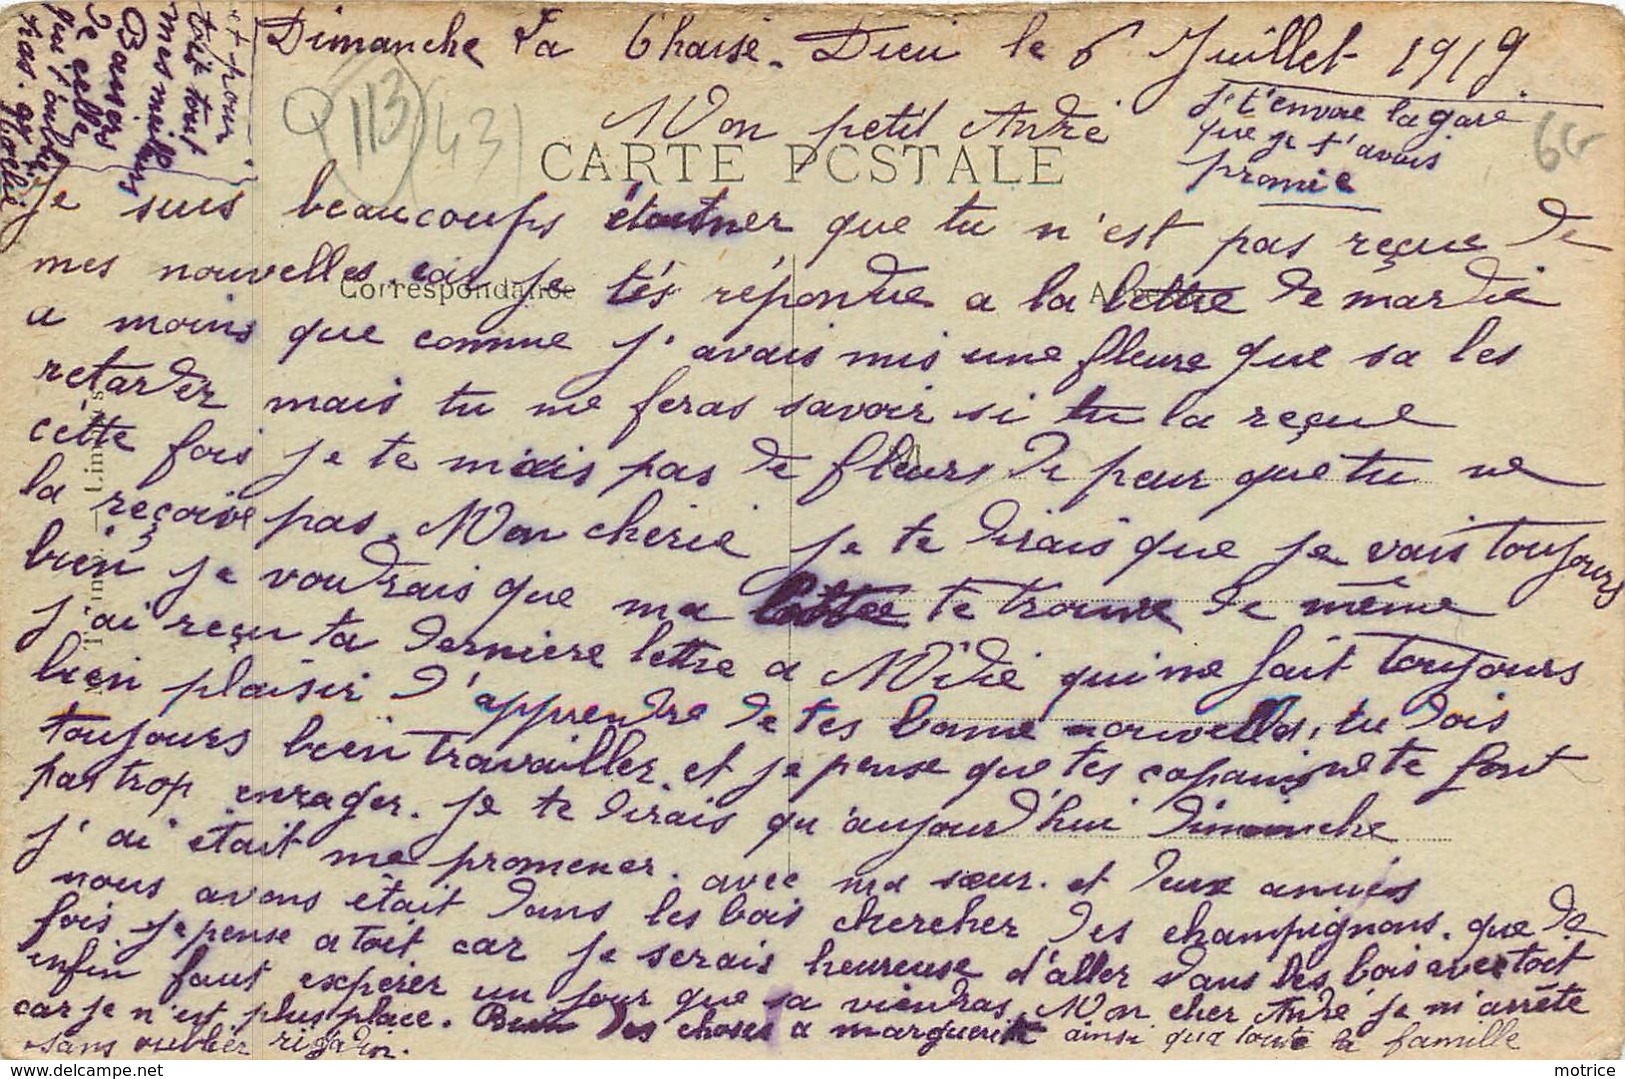 Dimanche La Chaise-Dieu le 6 Juillet 1919
Mon petit André
Je t'envoie la gare
que je t'avais
promie
CARTE POSTALE
Q 113 (43)
6G
Je suis beaucoups étoutner que tu n'est pas reçue de
mes nouvelles car je tés répondue a la lettre de mardie
Correspondance
a moins que comme j'avais mis une fleure que sa les
retarder mais tu me feras savoir si tu la reçue
cétte fois je te mais pas de fleurs de peur que tu ne
la reçoive pas. Mon cherie je te dirais que je vais toujours
bien je voudrais que ma lettre te trouve de même
j'ai reçu ta derniere lettre a Midie qui me fait toujours
bien plaisir d'apprendre de tes bonne nouvelles, tu dois
toujours bien travailler et je pense que tes copains ne te font
pas trop enrager. je te dirais qu'aujourd'hui dimanche
j'ai était me promener. avec ma sœur. et deux amies
nous avons était dans les bois chercher des champignons. que de
fois je pense a toit car je serais heureuse d'aller dans les bois avec toit
enfin faut expérer un jour que sa viendras. Mon cher André je m'arrête
car je n'est plus place. Bien des choses a marguerite ainsi qua toute la famille
sans oublier rigadin.
et pour
toit tout
mes meilleurs
Baisers
de celle
qui t'oublie
pas.